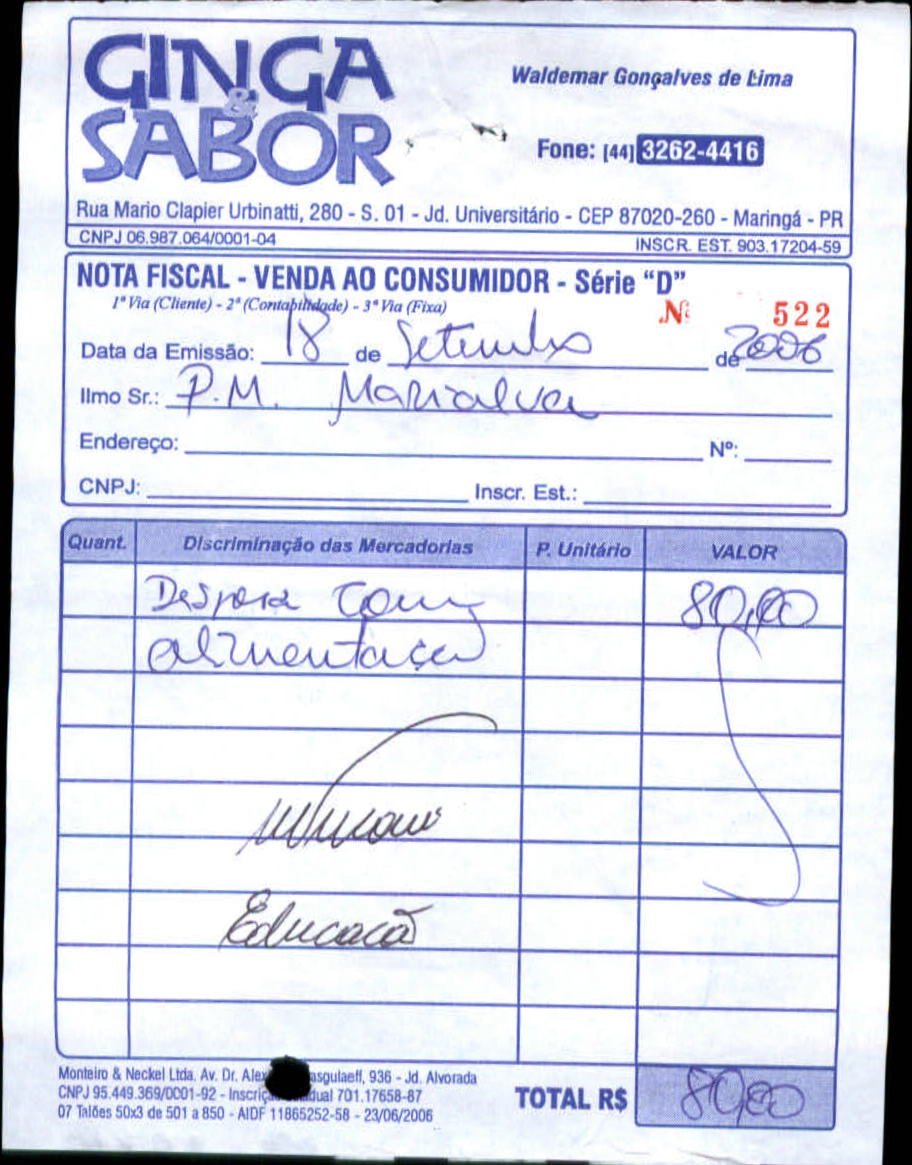 GINGA
&
SABOR
Waldemar Gonçalves de Lima
Fone: [44] 3262-4416
Rua Mario Clapier Urbinatti, 280 - S. 01 - Jd. Universitário - CEP 87020-260 - Maringá - PR
CNPJ 06.987.064/0001-04 INSCR. EST. 903.17204-59
NOTA FISCAL - VENDA AO CONSUMIDOR - Série "D"
1ª Via (Cliente) - 2ª (Contabilidade) - 3ª Via (Fixa)
Nº 522
Data da Emissão: 18 de Setembro de 2006
Ilmo Sr.: P.M. Marialva
Endereço: Nº:
CNPJ: Inscr. Est.:
Quant. Discriminação das Mercadorias P. Unitário VALOR
Despesa com 80,00
alimentação
Educação
Monteiro & Neckel Ltda. Av. Dr. asgulaeff, 936 - Jd. Alvorada
CNPJ 95.449.369/0001-92 - dual 701.17658-87
07 Talões 50x3 de 501 a 850 - AIDF 11865252-58 - 23/06/2006
TOTAL R$ 80,00